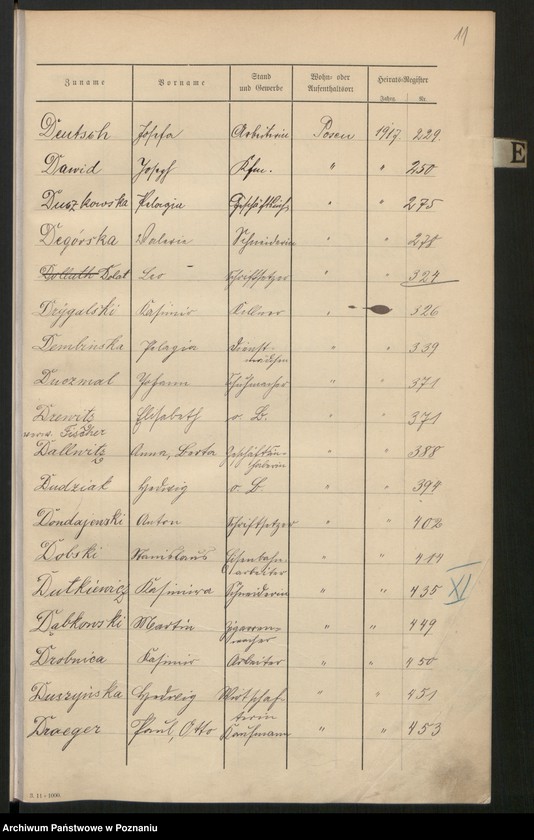 11
Zuname Vorname Stand und Gewerbe Wohn- oder Aufenthaltsort Heirats-Register
Jahrg. Nr.
Deutsch Josefa Arbeiterin Posen 1917. 229.
Dawid Joseph Kfm. " " 250
Duszkowska Pelagia " " 275
Degórska Valerie Schneiderin " "
Dollath Dolat Leo Schriftsetzer " " 324
Drygalski Kasimir Kellner " 326
Dembinska Pelagia Dienst- " " 339
mädchen
Duszmal Johann Schuhmacher " " 371
Drewitz Elisabeth o. B. " " 371
verw. Fischer
Dallwitz Anna, Berta Geschäftsin- " " 388
haberin
Dudziak Hedwig o. B. " " 394
Anton Schriftsetzer " " 402
Dobski Stanislaus Eisenbahn- " " 414
arbeiter
Dutkiewicz Kasimira Schneiderin " " 435 XI
Dąbkowski Martin Zigarren- " " 449
macher
Drobnica Kasimir Arbeiter " " 450
Duszyńska Hedwig Wirtschaf- " " 451
terin
Draeger Paul, Otto Kaufmann " " 453
E
S. 11 - 1000.
Archiwum Państwowe w Poznaniu